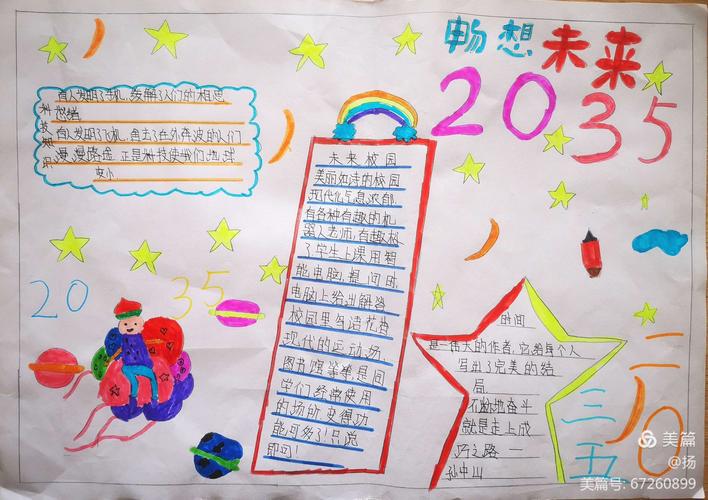 畅想未来
2035
科技知识
有人发明了手机,缓解了人们的相思
愁绪
有人发明了飞机,免去了在外奔波的人们
漫漫路途 正是科技使我们地球
变小
未来校园
美丽如诗的校园
现代化气息浓郁
有各种有趣的机
器人老师,有趣极
了学生上课用智
能电脑,提问时
电脑上给出解答
校园里鸟语花香
现代的运动场,
图书馆等等,是同
学们经常使用
的场所 变得功
能可多了!只说
即可!
20 35
时间
是一伟大的作者,它给每个人
写出了完美的结
局
不断地奋斗
就是走上成
功之路 —
孙中山
二〇
三五
美篇
@扬
美篇号: 67260899